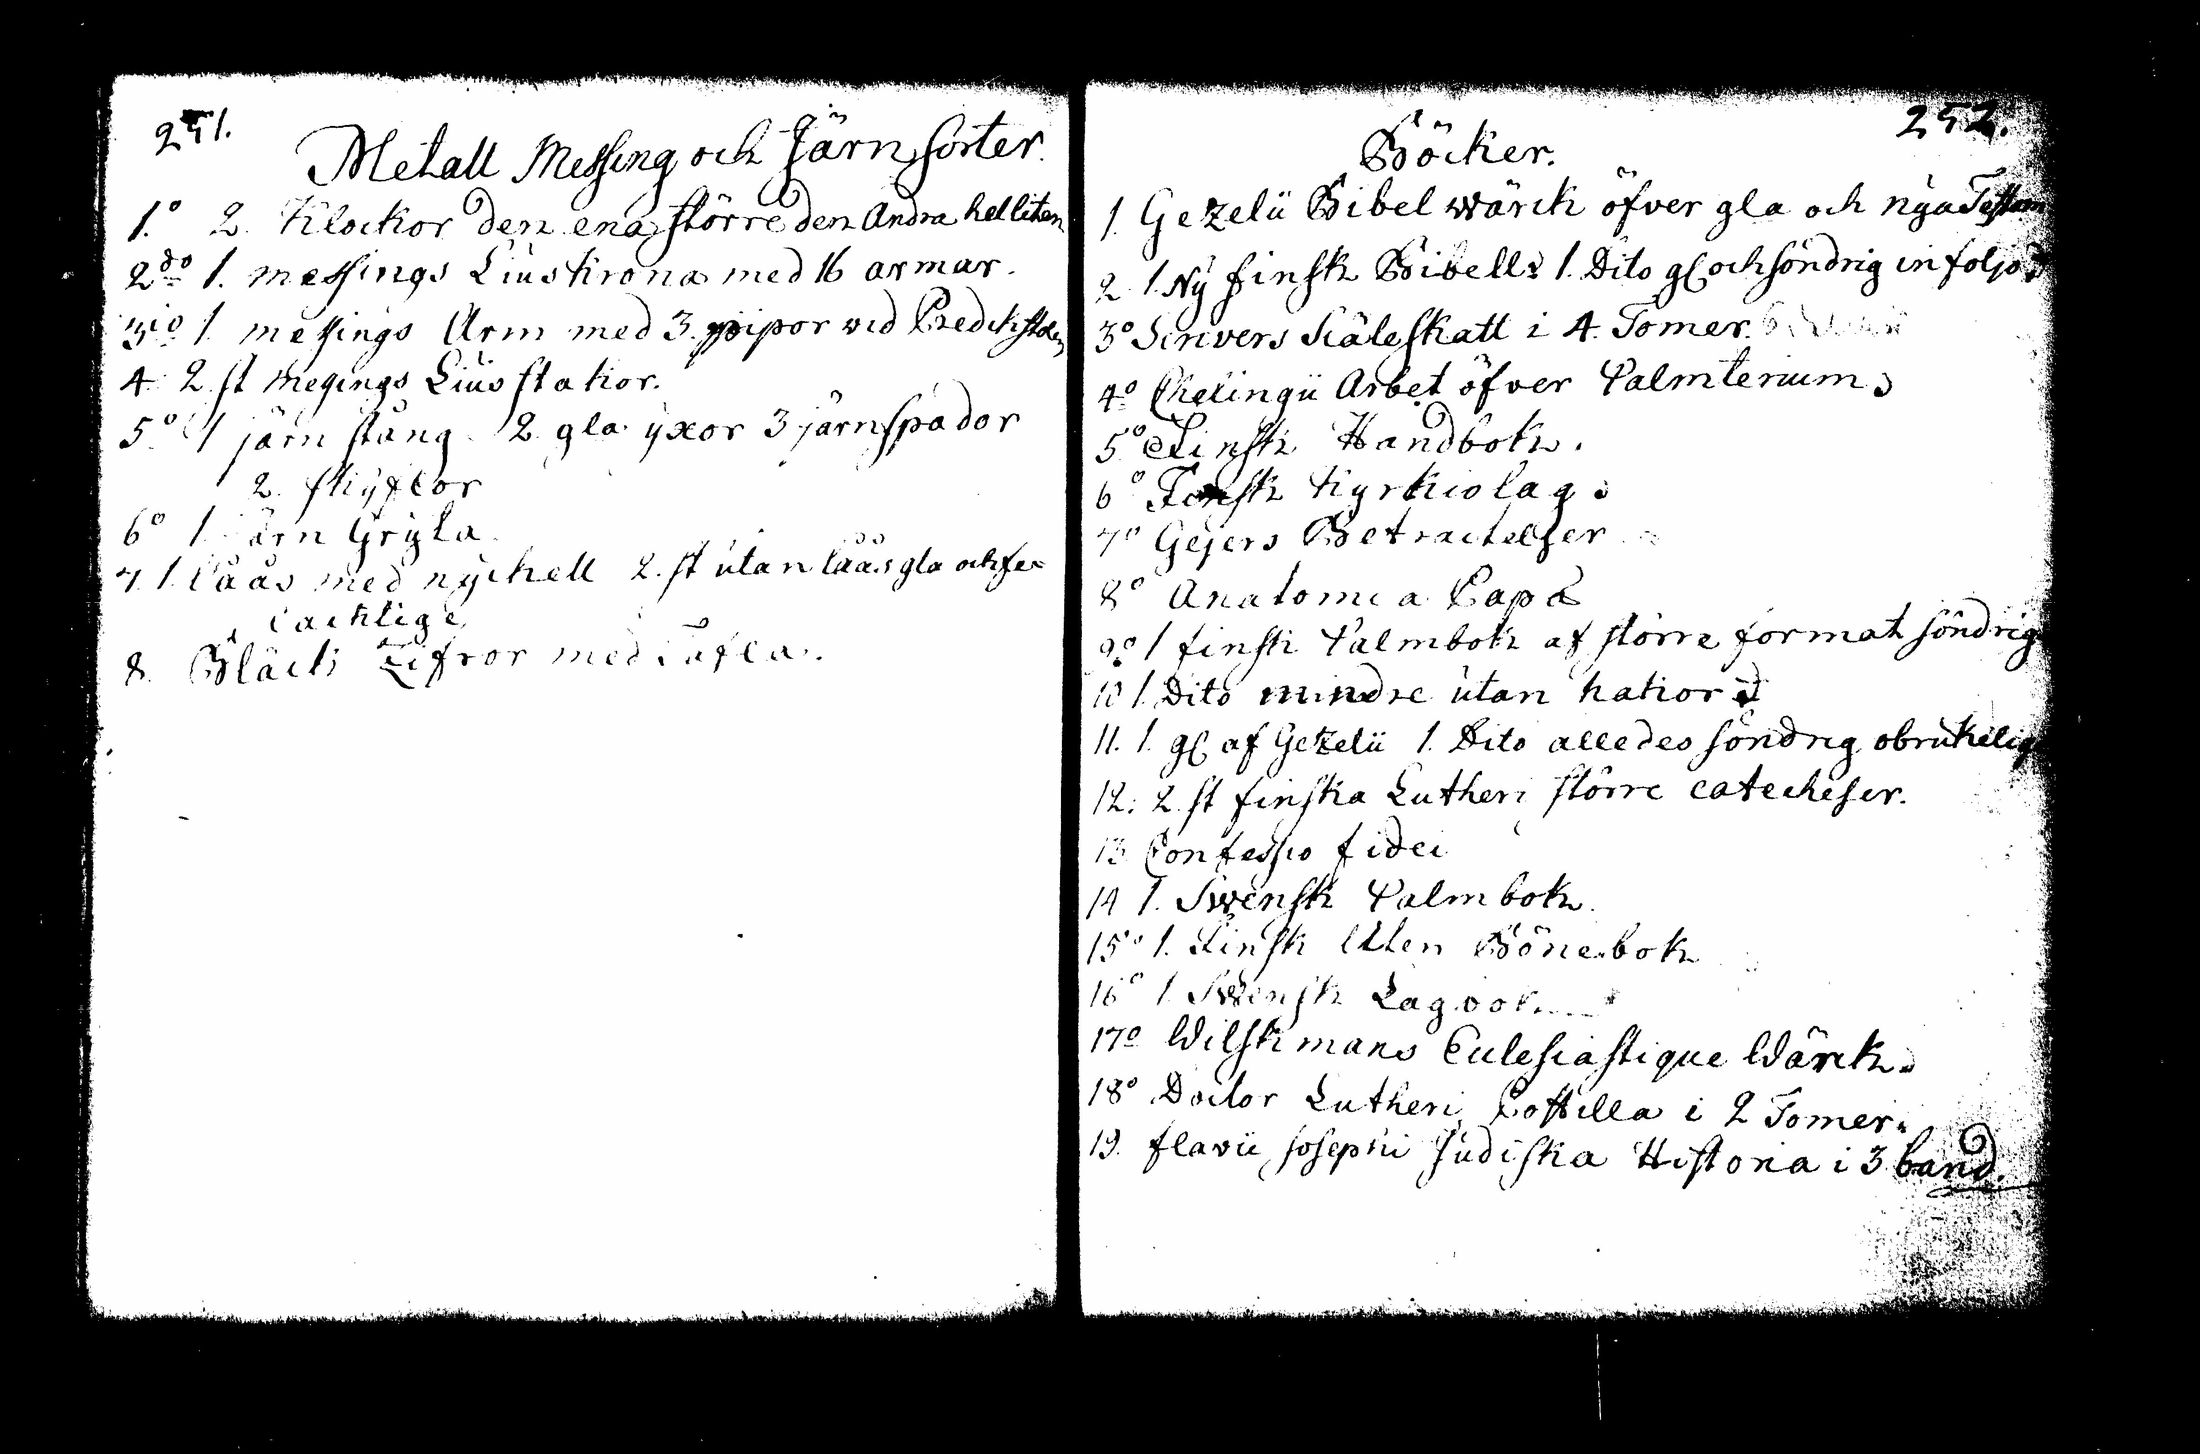 251.
Metall Messing och Järn sorter.
1.o 2. Klockor den ena större den Andra hel liten
2do 1. messings Liuskrona med 16 armar.
3io 1 messings Arm med 3. pipor wid Predikstolen
4. 2. st Messings Liusstakor.
5.o 1 järn stång. 2. gla yxor 3 järnspador
2. skyflor
6o 1. Järn Gryta.
7. 1. låås med nyckell 2. st utan låås gla och
8. Bläck Zifror med Tafla.
252.
Böcker.
1. Gezelii Bibel wärck öfver gla och nya Testam
2. 1. Ny finsk Bibell 1. Dito gl och söndrig in foljo
3o Scrivers Siäleskatt i 4. Tomer.
4o Chelingii Arbet öfver Psalmterium
5o Finsk Handbok.
6o Finsk Kyrkiolag
7o Gejers Betracktelser
8o Anatomia Papæ
9o 1 finsk Psalmbok af större format söndrig
10 1. Dito mindre utan hakor
11. 1. gl af Gezelii 1. Dito alledes söndrig obrukelig
12. 2. st finska Lutheri större catecheser.
13 Confessio fidei
14 1. Swensk Psalmbok.
15o 1. Finsk liten Bönebok
16o 1. Swensk Lagbok
17o Wilskmans Eclesiastique Wärck
18o Doctor Lutheri Postilla i 2 Tomer.
19. flavii josephi judiska Historia i 3 band.